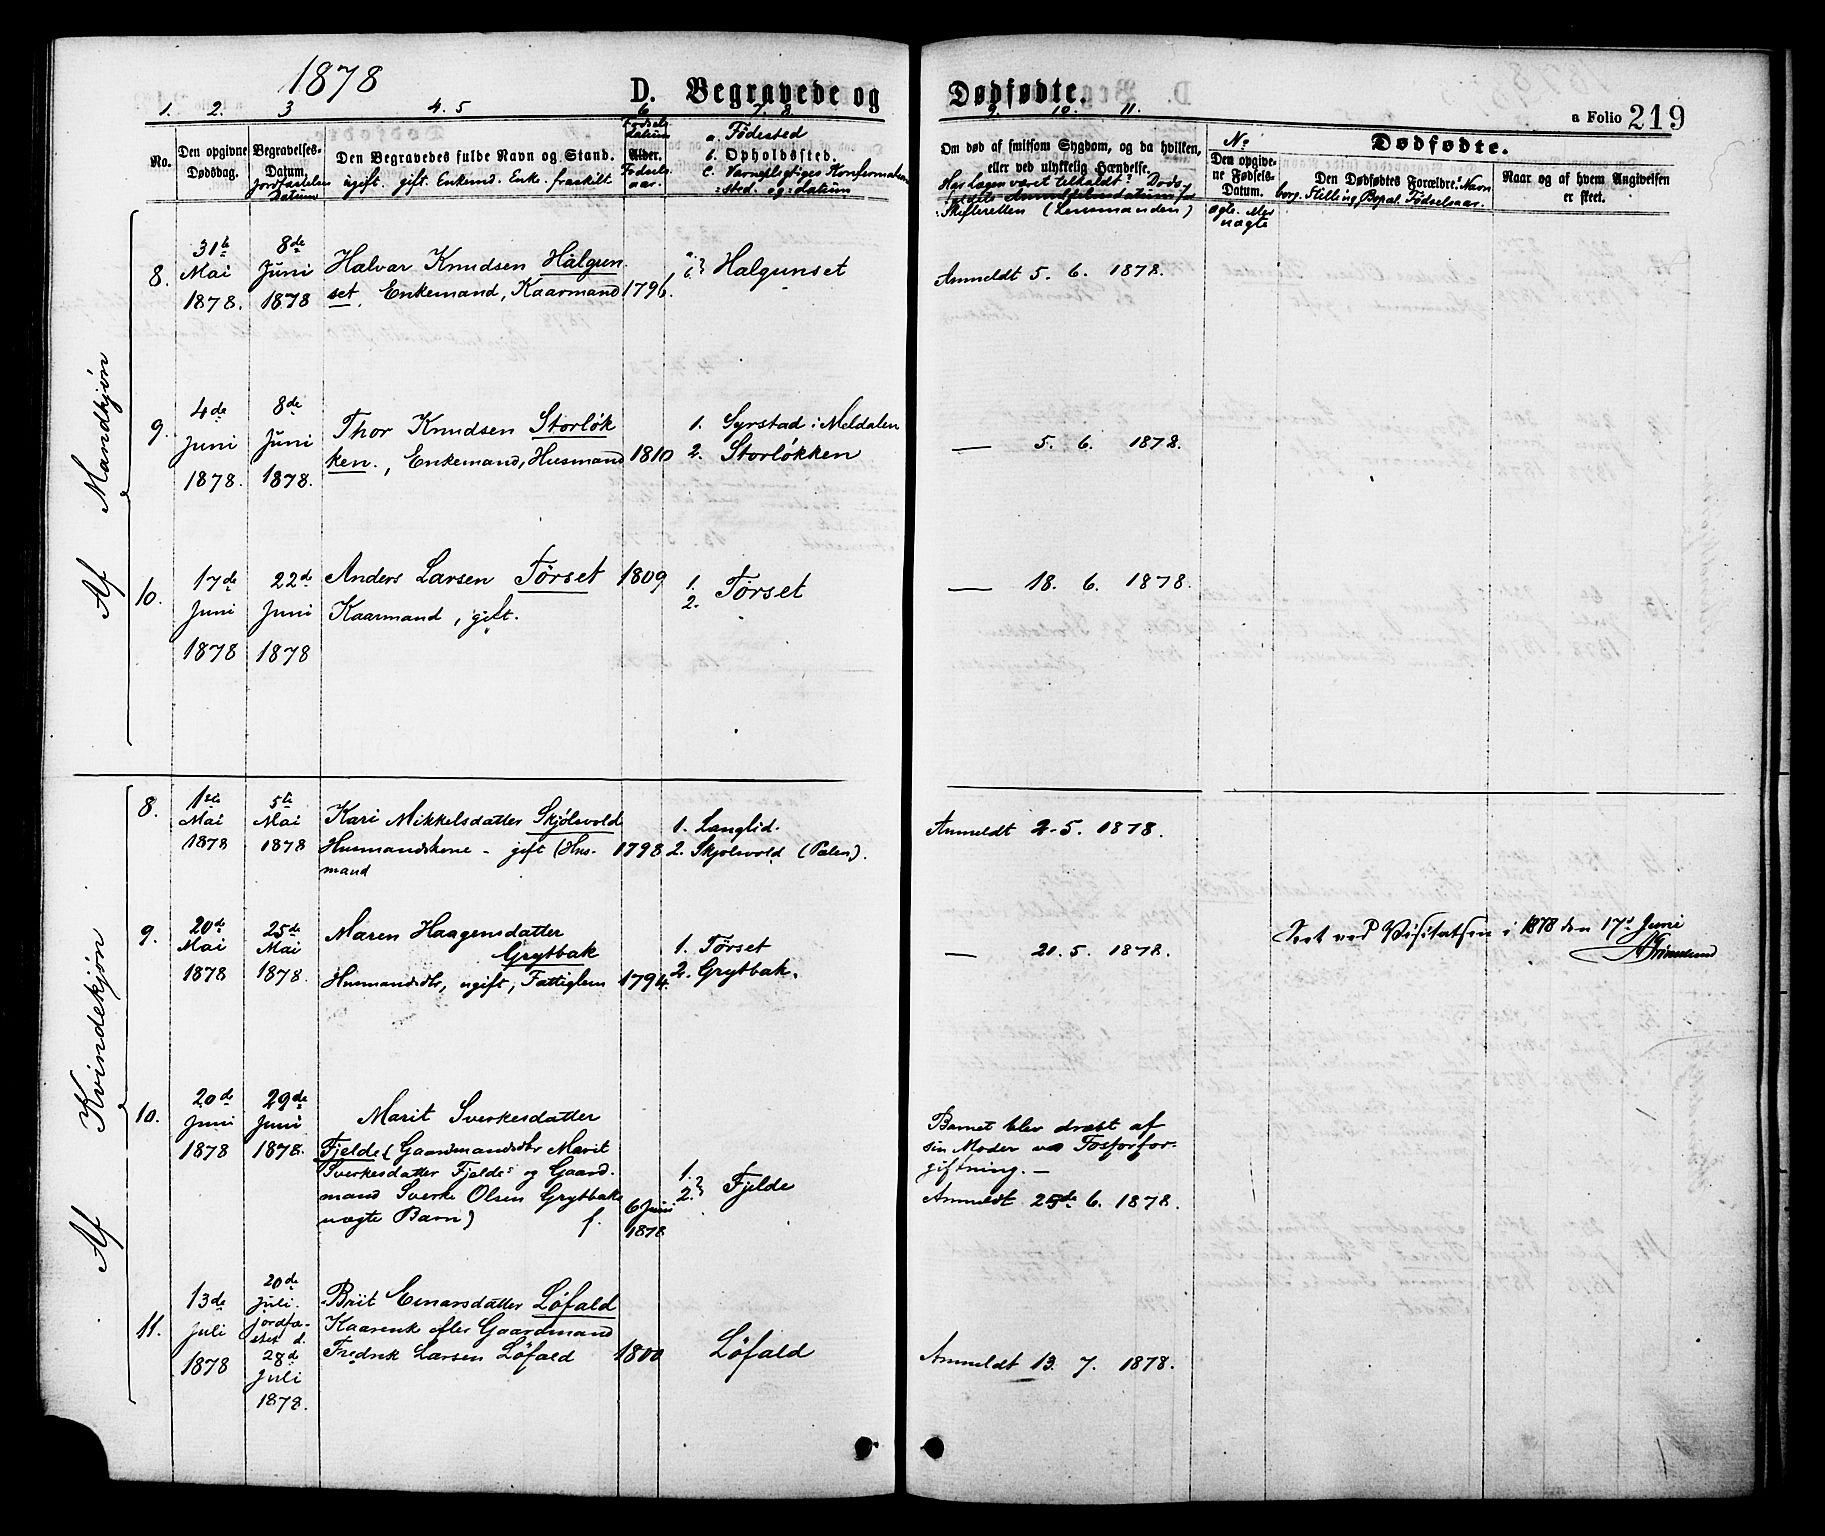 1878
D. Begravede og Dødfødte.
a Folio 219
1. 2. 3 4. 5 6 7. 8. 9. 10. 11.
No.
Den opgivne Dødsdag.
Begravelses-Datum.
Jordfæstelses Datum
Den Begravedes fulde Navn og Stand.
ugift. gift. Enkemd. Enke. fraskilt
Fødsels datum
Alder.
Fødsels-aar.
a. Fødested
b. Opholdssted.
c. Værnepligtiges Konfermations
sted og datum
Om død af smitsom Sygdom, og da hvilken,
eller ved ulykkelig Hændelse.
Skifteretten (Lensmanden)
No
Den opgivne Fødsels-Datum.
ægte eller uægte
Dødfødte.
Den Dødfødtes Forældres Navn
borg. Stilling, Bopæl. Fødselsaar.
Naar og af hvem Angivelsen
er skeet.
Af Mandkjøn
8.
31te Mai 1878.
8de Juni 1878
Halvar Knudsen Halgun-
set, Enkemand, Kaarmand
1796.
Halgunset
Anmeldt 5. 6. 1878.
9.
4de Juni 1878.
8de Juni 1878.
Thor Knudsen Storløk
ken., Enkemand, Husmand
1810
1. Syrstad i Meldalen
2. Storløkken
— 5. 6. 1878.
10.
17de Juni 1878
22de Juni 1878
Anders Larsen Tørset
Kaarmand, gift.
1809
1.
2. Tørset
— 18. 6. 1878.
Af Kvindekjøn
8.
1ste Mai 1878
5te Mai 1878
Kari Mikkelsdatter Skjølsvold
Husmandskone - gift (Hus-
mand
1798
1. Langlid.
2. Skjølsvold (Pålen).
Anmeldt 2. 5. 1878.
9.
20de Mai 1878
25de Mai 1878.
Maren Haagensdatter
Grytbak
Husmandsdtr, ugift, Fattiglem
1794.
1. Tørset
2. Grytbak.
— 21. 5. 1878.
Seet ved Visitatsen i 1878 den 17d Juni
10.
20de Juni 1878
29de Juni 1878.
Marit Sverkesdatter
Fjelde (Gaardmandsdtr Marit
Sverkesdatter Fjeldes og Gaard-
mand Sverke Olsen Grytbak
uægte Barn) f.
6 Juni
1878
1.
2. Fjelde
Barnet blev dræbt af
sin Moder ved Fosforfor-
giftning. —
Anmeldt 25de 6. 1878.
11.
13de Juli 1878
20de Juli.
jordfæ-
stet d.
28de Juli
1878.
Brit Einarsdatter Løfald
Kaarenk. efter Gaardmand
Fredrik Larsen Løfald
1800
Løfald
Anmeldt 13. 7. 1878.